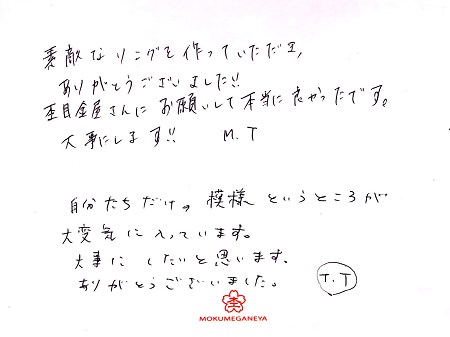 素敵なリングを作っていただき、
ありがとうございました!!
杢目金屋さんにお願いして本当に良かったです。
大事にします!!　M.T
自分たちだけの模様というところが
大変気に入っています。
大事にしたいと思います。
ありがとうございました。　T.T
杢
MOKUMEGANEYA